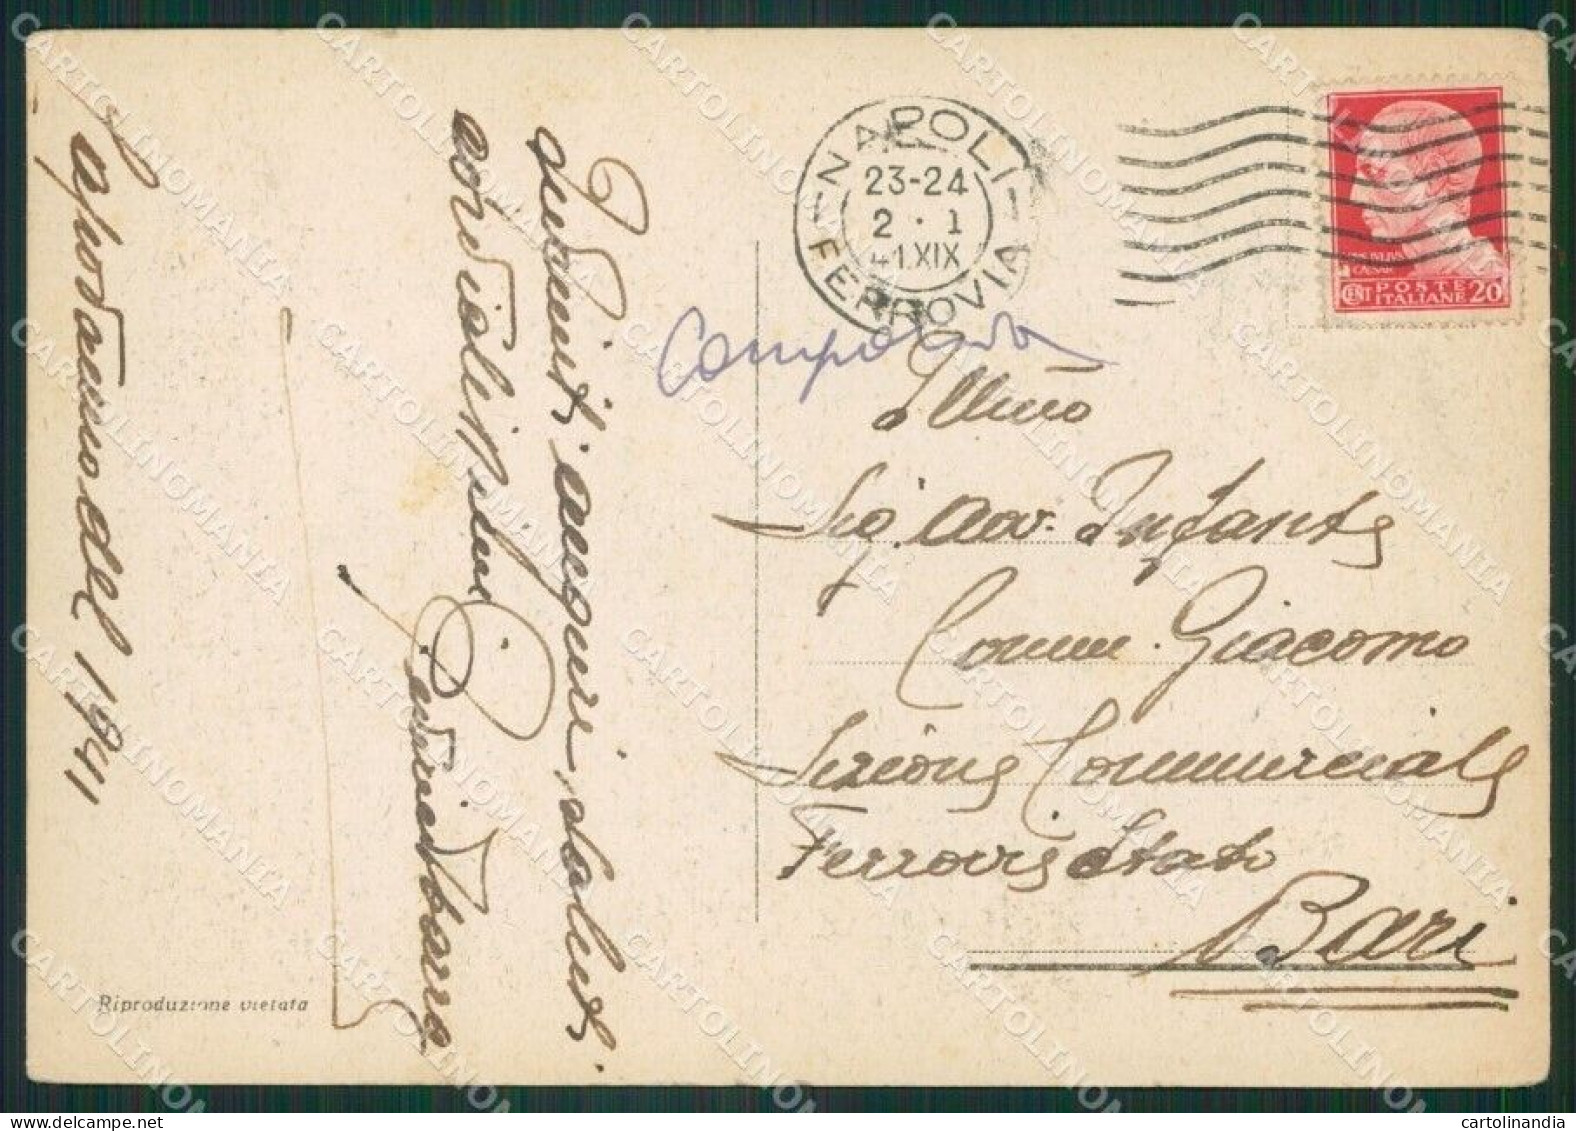 NAPOLI
23-24
2 · 1
41.XIX
FERROVIA
CENT POSTE ITALIANE 20
Illmo
Sig. Avv. Infante
Comm. Giacomo
Sezione Commerciale
Ferrovie Stato
Bari
auguri, saluti
cordialissimi
Capodanno del 1941
Riproduzione vietata
CARTOLINOMANIA
delcampe.net
cartolinandia